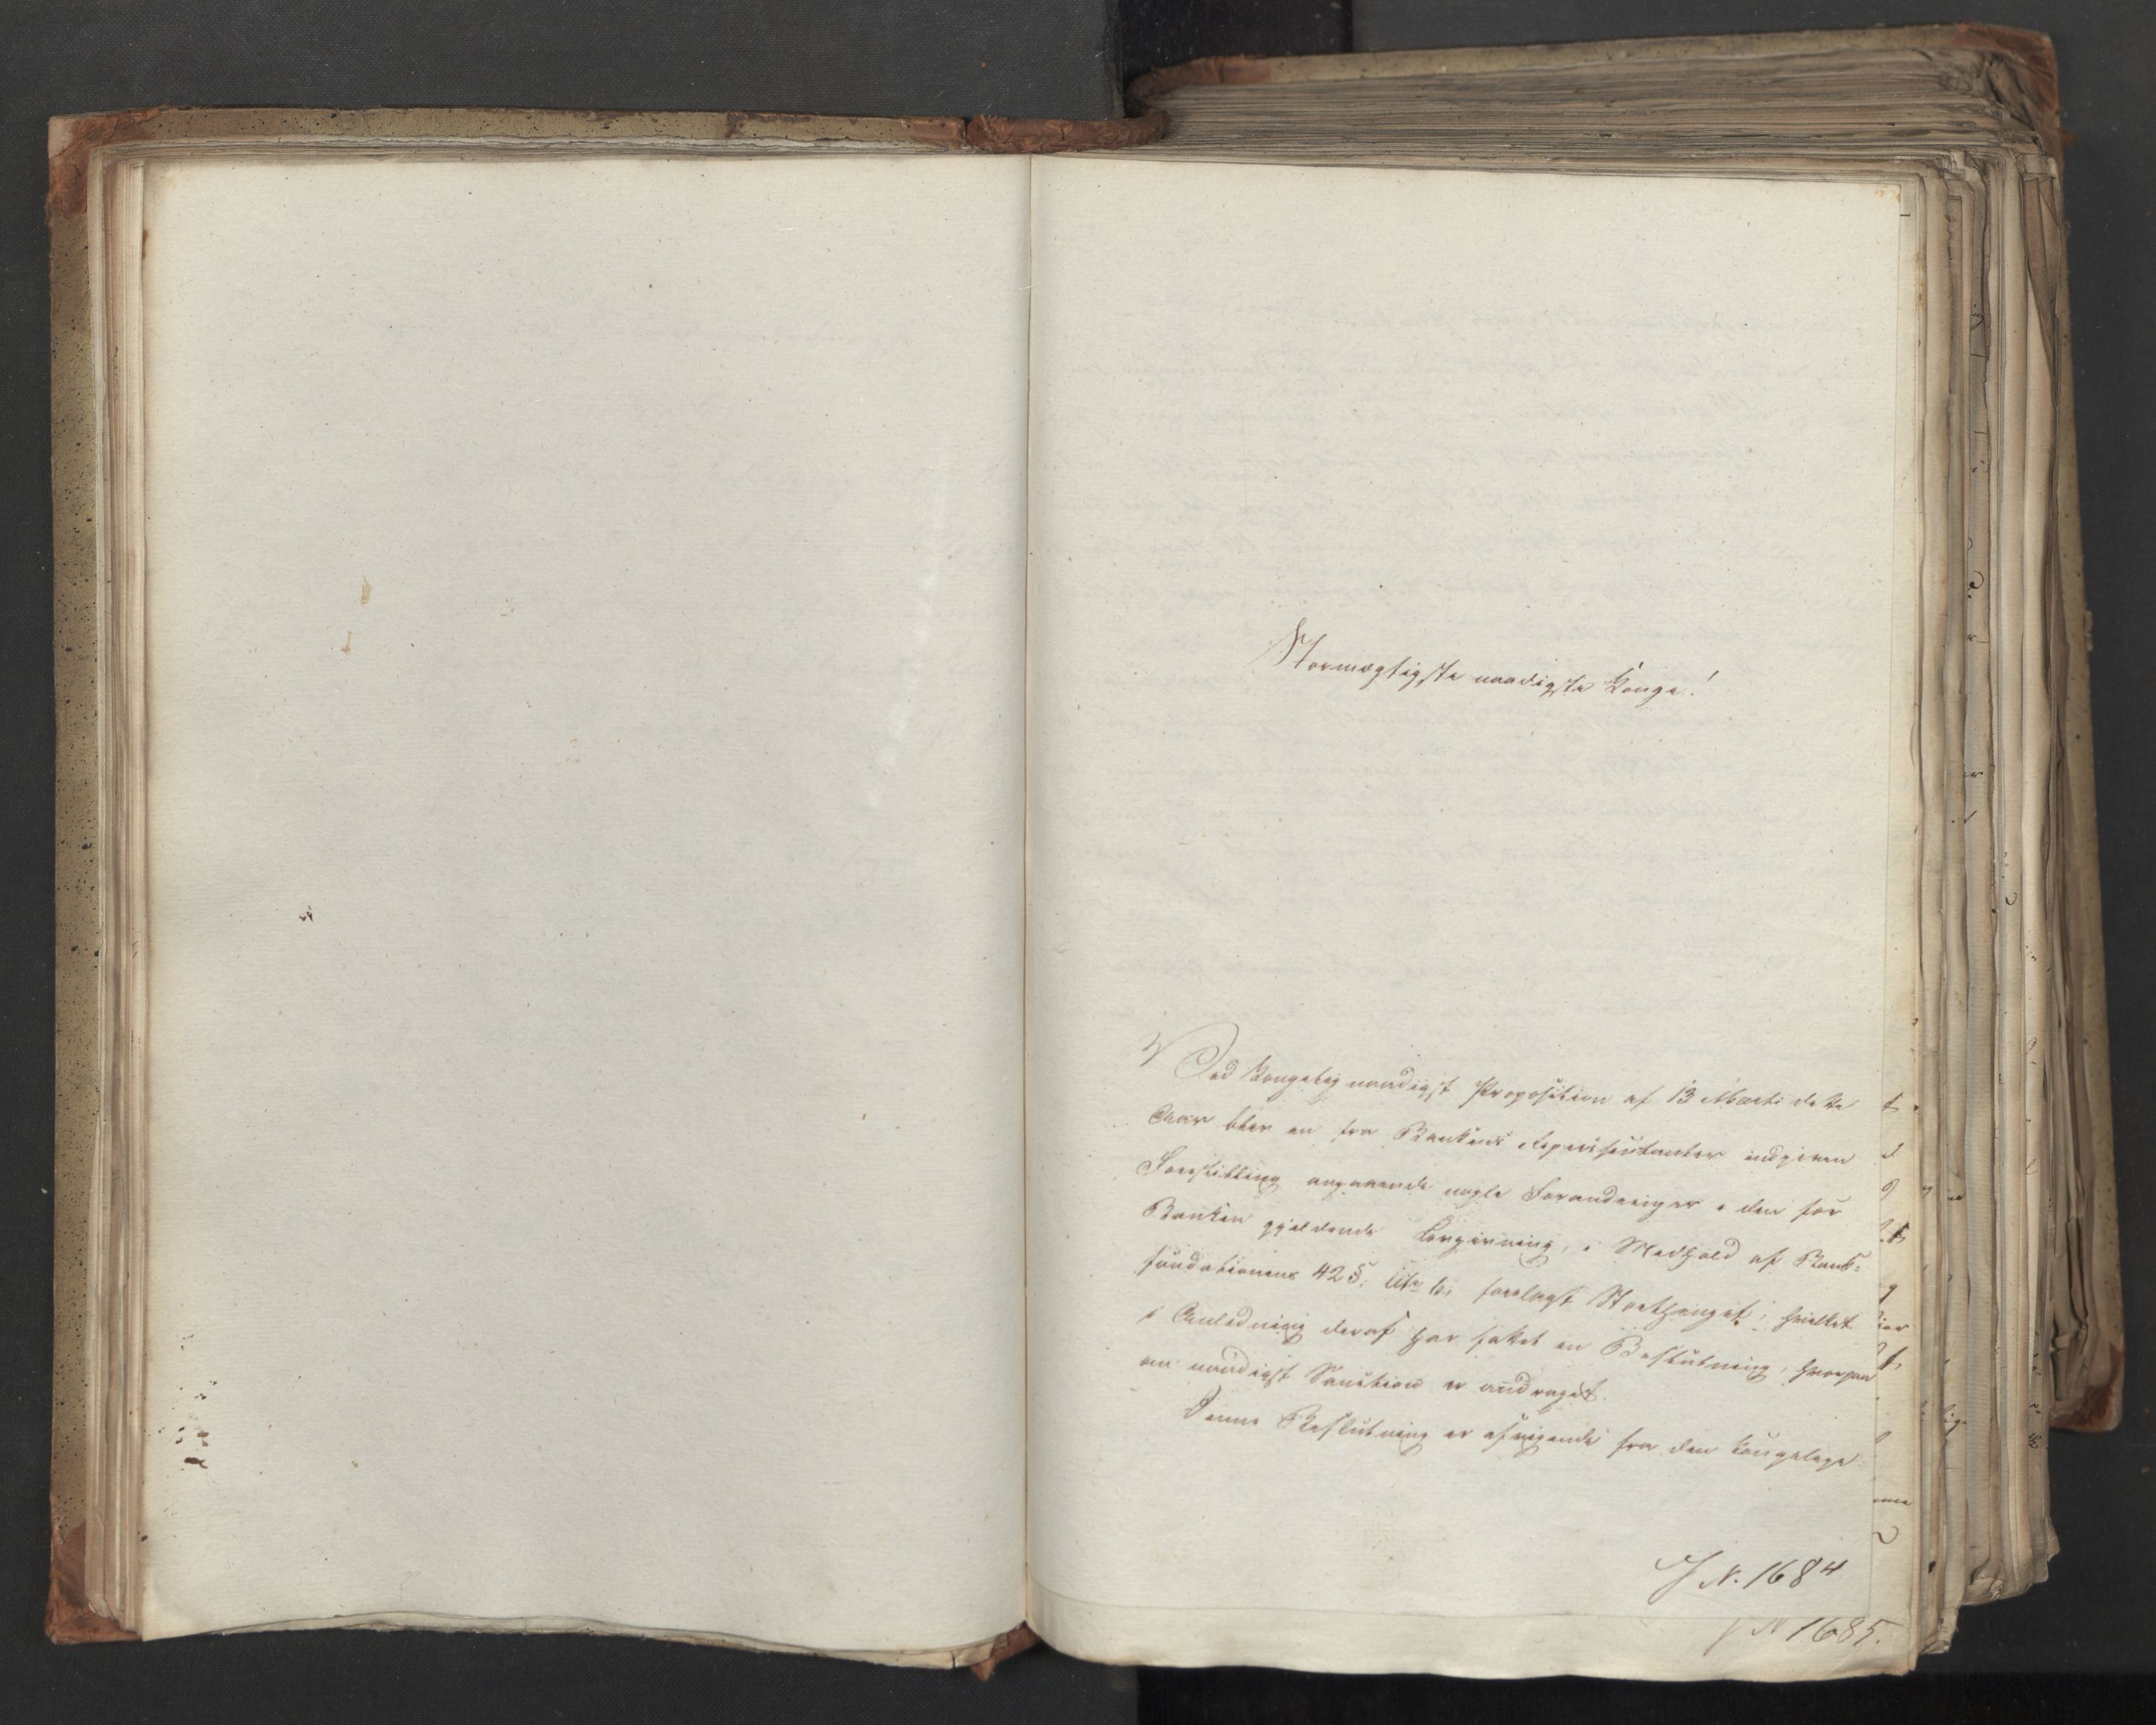 Stormægtigste naadigste Konge!
Ved Kongelig naadigst Proposition af 13 Marti dette
Aar blev en fra Bankens Repræsentanter indgiven
Forestilling angaaende nogle Forandringer i den for
Banken gjeldende Lovgivning, i Medhold af Bank-
fundationens 42 §, litr. b, forelagt Storthinget, hvilket
i Anledning deraf har fattet en Beslutning, hvorpaa
om naadigst Sanction er andraget.
Denne Beslutning er afvigende fra den Kongelige
J N. 1684
J N 1685.